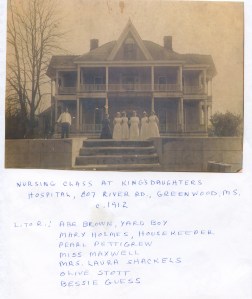 NURSING CLASS AT KINGSDAUGHTERS
HOSPITAL, 807 RIVER RD., GREENWOOD, MS.
c. 1912
L. TO R.: ABE BROWN, YARD BOY
MARY HOLMES, HOUSEKEEPER
PEARL PETTIGREW
MISS MAXWELL
MRS. LAURA SHACKELS
OLIVE STOTT
BESSIE GLESS